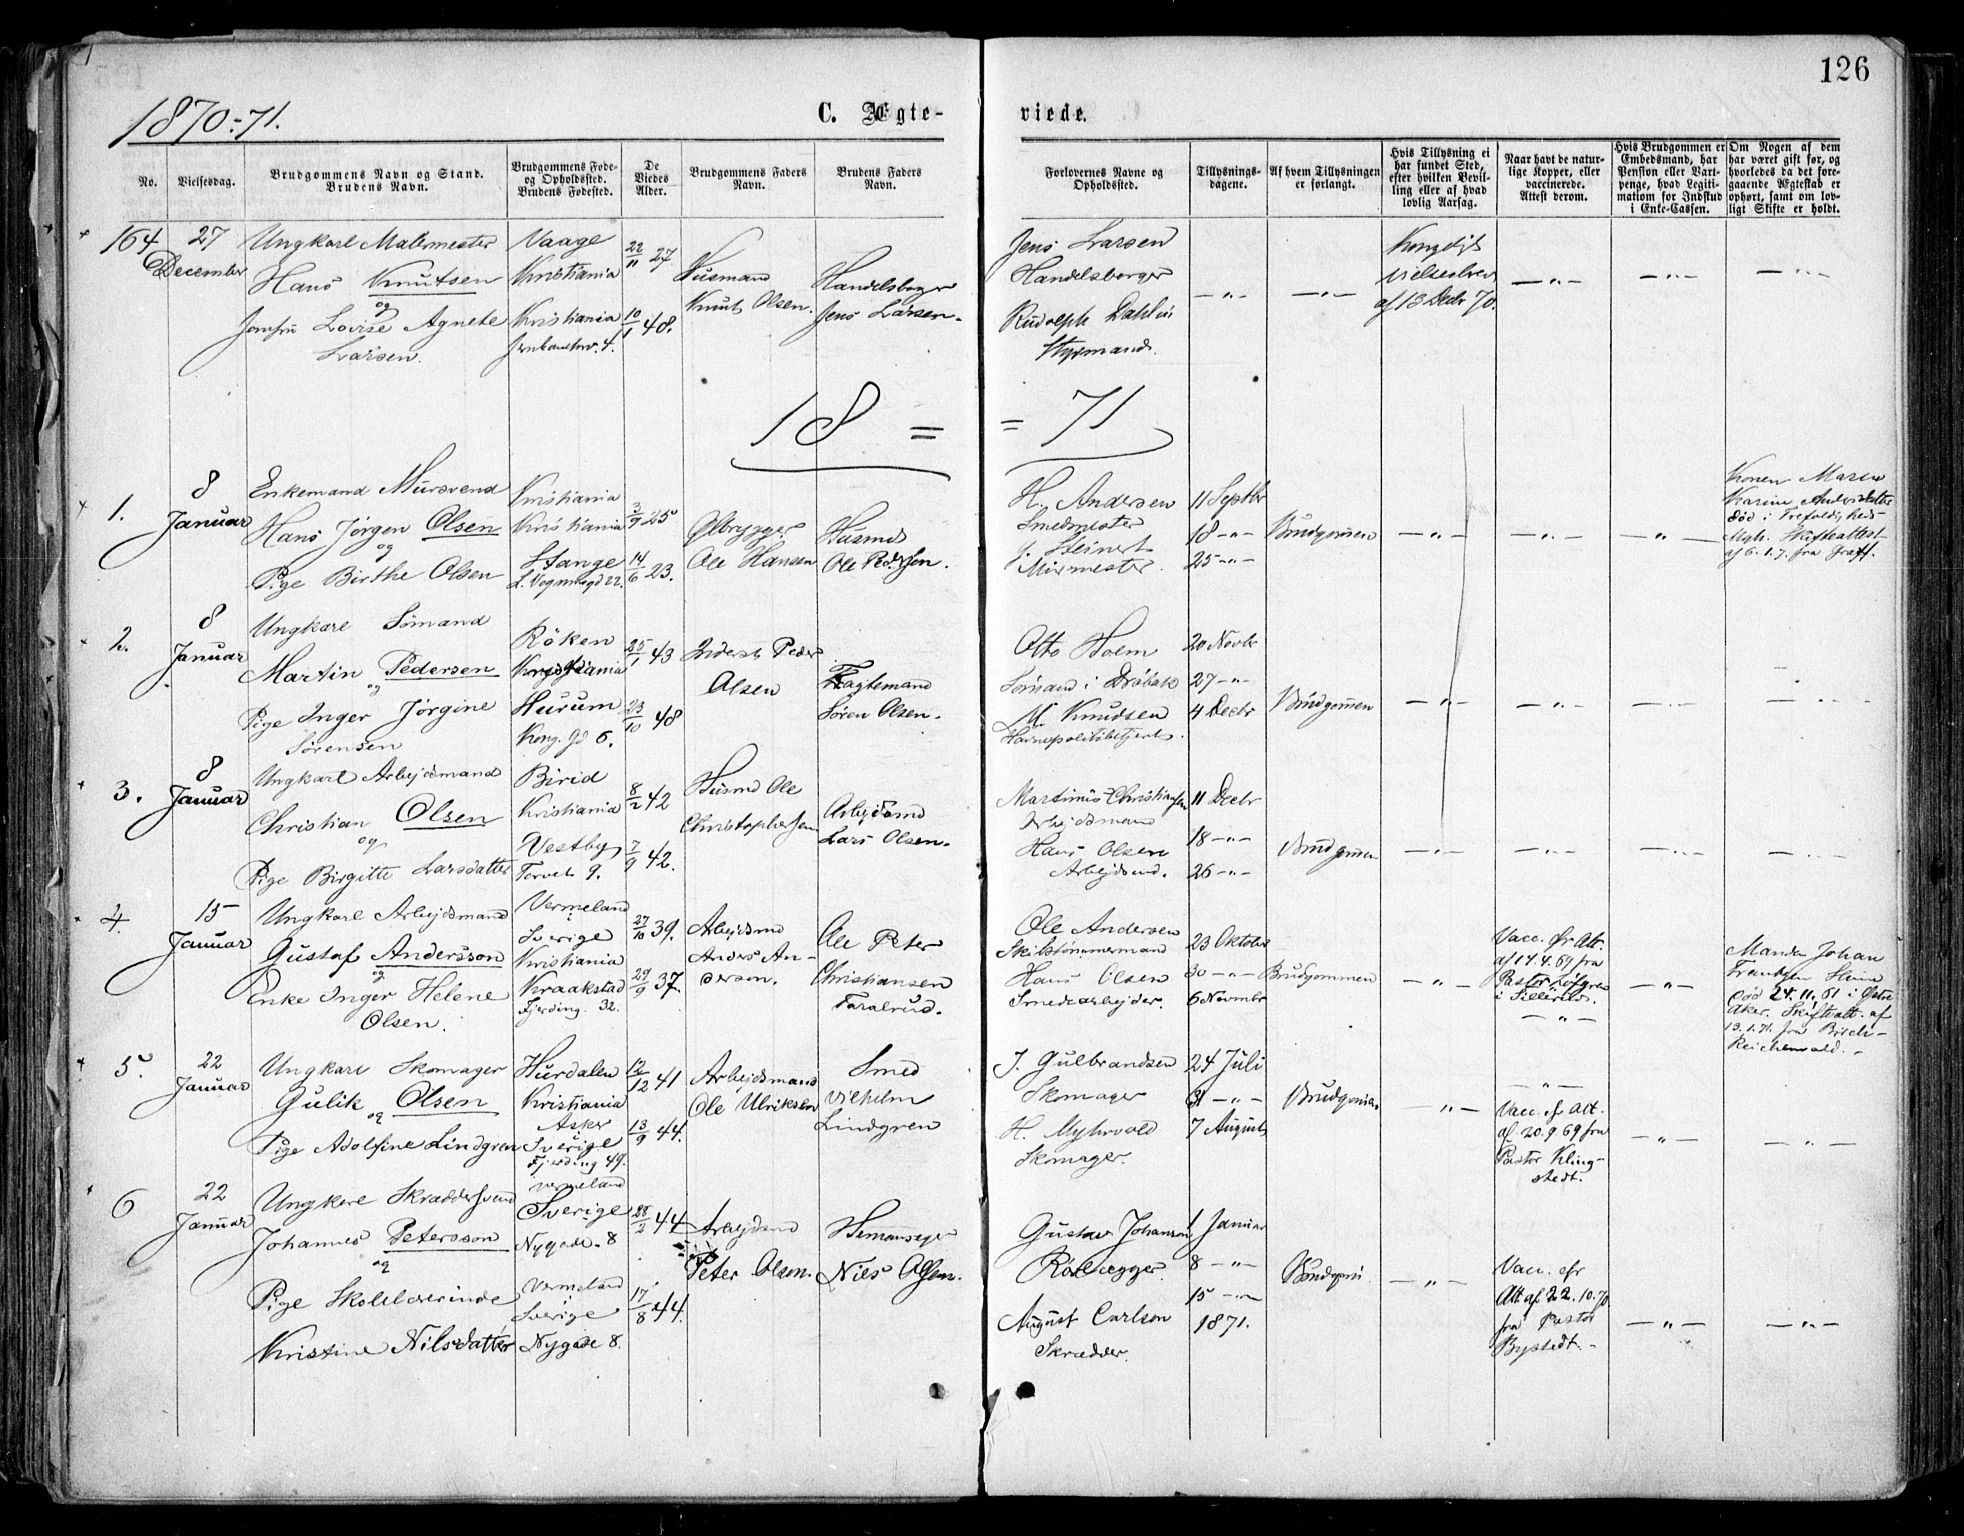 126
1870-71.
C. Ægte-
viede.
No.
Vielsesdag.
Brudgommens Navn og Stand.
Brudens Navn.
Brudgommens Føde-
og Opholdssted.
Brudens Fødested.
De
Viedes
Alder.
Brudgommens Faders
Navn.
Brudens Faders
Navn.
Forlovernes Navne og
Opholdssted.
Tillysnings-
dagene.
Af hvem Tillysningen
er forlangt.
Hvis Tillysning ei
har fundet Sted,
efter hvilken Bevil-
ling eller af hvad
lovlig Aarsag.
Naar havt de natur-
lige Kopper, eller
vaccinerede.
Attest derom.
Hvis Brudgommen er
Embedsmand, har
Pension eller Vart-
penge, hvad Legiti-
mation for Indskud
i Enke-Cassen.
Om Nogen af dem
har været gift før, og
hvorledes da det fore-
gaaende Ægteskab er
ophørt, samt om lov-
ligt Skifte er holdt.
164
27
December
Ungkarl Malermester
Hans Knutsen
og
Jomfru Lovise Agnete
Larsen.
Vaage
Kristiania
Kristiania
22/11 27
10/1 48.
Husmand
Knut Olsen.
Handelsborger
Jens Larsen.
Jens Larsen
Handelsborger
Rudolph Dahlin
Styrmand.
— " —
— " —
Kongeligt
Vielsesbrev
af 13 Decbr 70.
— " —
— " —
— " —
18 =
= 71
1.
8
Januar
Enkemand Mursvend
Hans Jörgen Olsen
og
Pige Birthe Olsen
Kristiania
Kristiania
Stange
L. Vognmagd 22.
3/9 25
14/6 23.
Ølbrygger
Ole Hansen
Husmd
Ole Pedersen.
H. Andersen
Smedmester
J. Steinert
Murmester.
11 Septbr
18 — " —
25 — " —
Brudgommen
— " —
— " —
— " —
Konen Maren
Karine Andersdatter
död i Trefoldigheds-
Mgh. Skifteattest
af 6.1.7. fra Graff.
2.
8
Januar
Ungkarl Sömand
Martin Pedersen
og
Pige Inger Jörgine
Sörensen
Röken
Kristiania
Hurum
Kong. Gd 6.
25/1 43
23/10 48
Inderst Peder
Olsen
Fragtemand
Sören Olsen.
Otto Holm
Sömand i Dröbak
M. Knudsen
Havnepolitibetjent.
20 Novbr
27 — " —
4 Decbr
Brudgommen
— " —
— " —
— " —
3.
8
Januar
Ungkarl Arbejdsmand
Christian Olsen
og
Pige Birgitte Larsdatter
Birid
Kristiania
Vestby
Torvet 9.
8/2 42
7/9 42.
Husmd Ole
Christophersen
Arbejdsmd
Lars Olsen.
Martinus Christiansen
Arbejdsmand
Hans Olsen
Arbejdsmd.
11 Decbr
18 — " —
26 — " —
Brudgommen
— " —
— " —
— " —
— " —
4.
15
Januar
Ungkarl Arbejdsmand
Gustaf Andersson
og
Enke Inger Helene
Olsen.
Vermeland
Sverige
Kristiania
Kraakstad
Fjerding. 32.
27/10 39.
29/9 37.
Arbejdsmd
Anders An-
derson.
Ole Peter
Christiansen
Taralrud.
Ole Andersen
Skibstömmermand
Hans Olsen
Smedearbejder.
23 Oktober
30 — " —
6 Novmbr
Brudgommen
— " —
Vacc. efr Att.
af 14.4.69 fra
Pastor Löfgren
i Sillerud.
— " —
— " —
Manden Johan
Frandsen Stene
död 24.11.61 i Östre
Aker. Skifteatt. af
13.1.71. fra Birch-
Reichenwald.
5.
22
Januar
Ungkarl Skomager
Gulik Olsen
og
Pige Adolfine Lindgren
Hurdalen
Kristiania
Asker
Sverige
Fjerding 49.
12/12 41
13/9 44.
Arbejdsmand
Ole Ulriksen
Smed
Vilhelm
Lindgren
J. Gulbrandsen
Skomager
H. Myhrvold
Skomager.
24 Juli
31 — " —
7 August
Brudgommen
— " —
— " —
Vacc. efr Att.
af 20.9.69 fra
Pastor Kling-
stedt.
— " —
— " —
6
22
Januar
Ungkarl Skræddersvend
Johannes Petersson
og
Pige Skolelærerinde
Kristine Nilsdatter
Vermeland
Sverige
Nygade. 8
Vermeland
Sverige
Nygade 8.
28/2 44
17/8 44.
Arbejdsmd
Peter Olsen.
Hemmansejer
Nils Olsen.
Gustav Johanson
Rörlægger.
August Carlson
Skrædder.
1 Januar
8 — " —
15 — " —
1871.
Brudgom.
— " —
Vacc. efr
Att. af 22.10.70
fra Pastor
Bystedt.
— " —
— " —